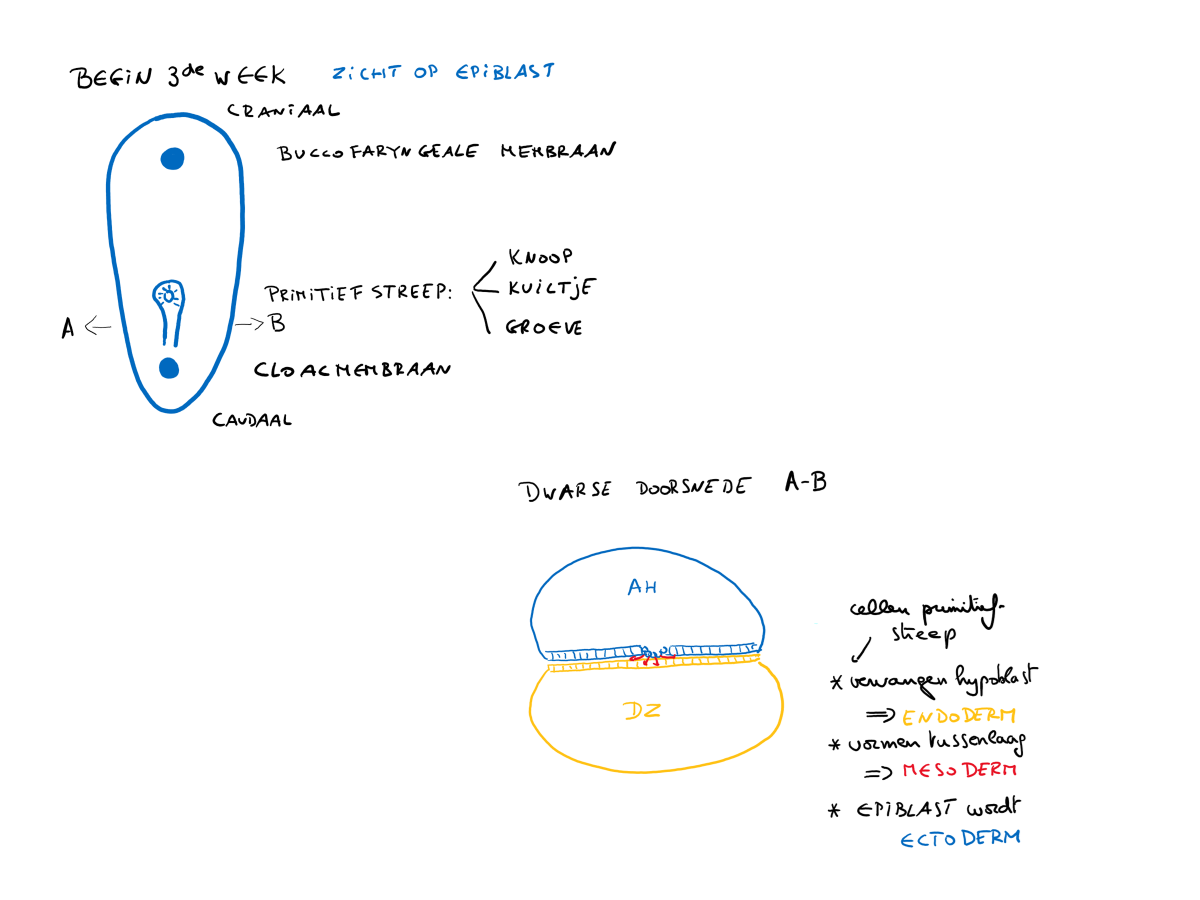 BEGIN 3de WEEK ZICHT OP EPIBLAST
CRANIAAL
BUCCOFARYNGEALE MEMBRAAN
KNOOP
PRIMITIEF STREEP: KUILTJE
GROEVE
A B
CLOACMEMBRAAN
CAUDAAL
DWARSE DOORSNEDE A-B
AH
cellen primitief-
streep
* vervangen hypoblast
DZ
=> ENDODERM
* vormen tussenlaag
=> MESODERM
* EPIBLAST wordt
ECTODERM